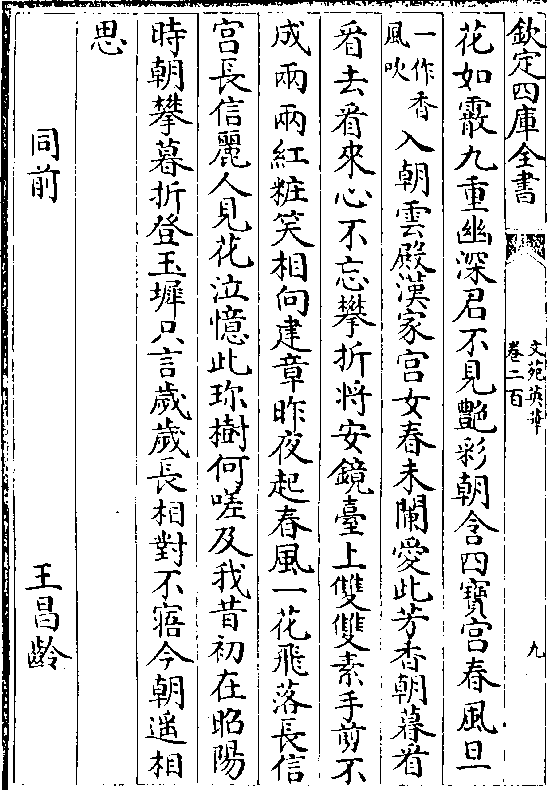 欽定四庫全書
文苑英華
卷二百
九
花如霰九重幽深君不見艷彩朝含四寳宫春風旦
一作香
風吹
入朝雲殿漢家宫女春未闌愛此芳香朝暮看
看去看來心不忘攀折將安鏡臺上雙雙素手剪不
成兩兩紅粧笑相向建章昨夜起春風一花飛落長信
宫長信麗人見花泣憶此珍樹何嗟及我昔初在昭陽
時朝攀暮折登玉墀只言歲歲長相對不寤今朝遥相
思
同前
王昌齡